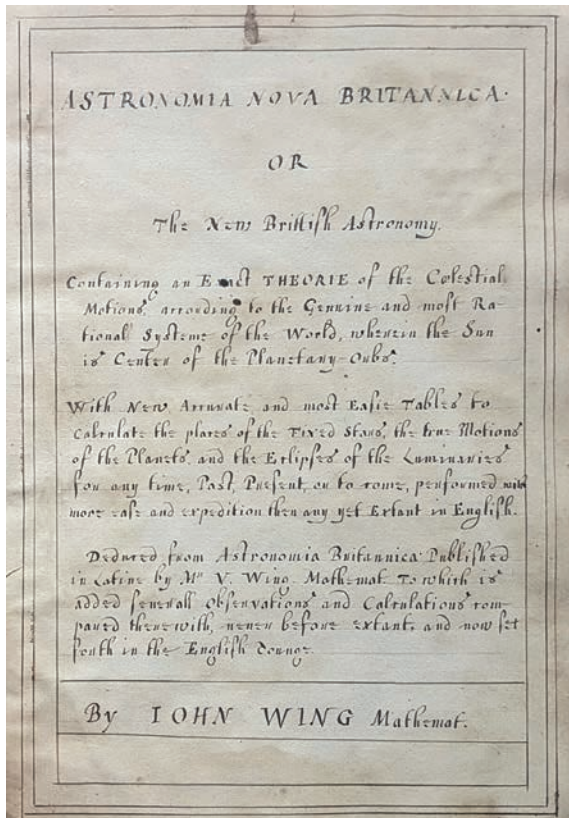 ASTRONOMIA NOVA BRITANNICA.
OR
The New Brittish Astronomy.
Containing an Exact THEORIE of the Cœlestial
Motions, according to the Genuine and most Ra-
tional Systeme of the World, wherein the Sun
is Center of the Planetary Orbs.
With New, Accurate, and most Easie Tables to
Calculate the places of the Fixed Stars, the true Motions
of the Planets, and the Eclipses of the Luminaries
for any time, Past, Present, or to come, performed with
more ease and expedition then any yet Extant in English.
Deduced from Astronomia Britannica Published
in Latine by Mr V. Wing. Mathemat. To which is
added severall Observations and Calculations com-
pared therewith, never before extant, and now set
forth in the English Tounge.
By IOHN WING Mathemat.